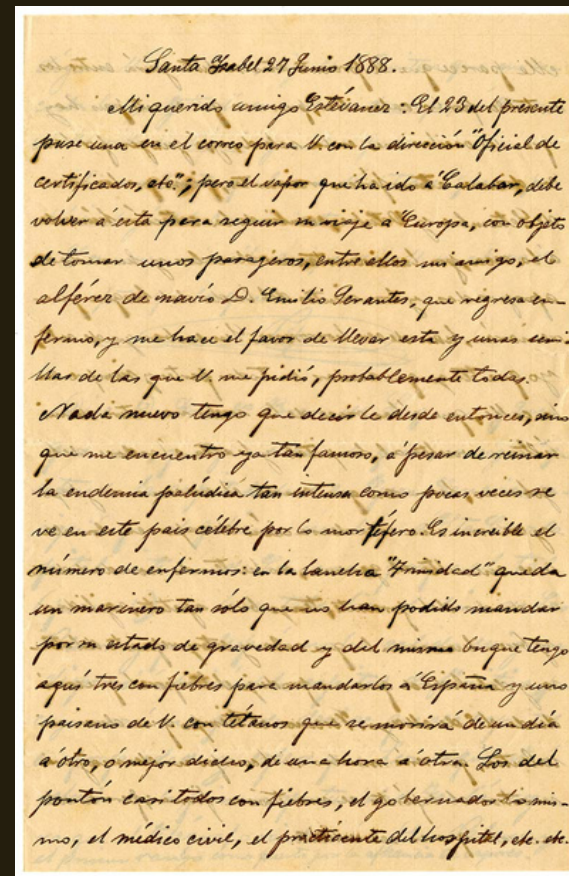 Santa Isabel 27 Junio 1888.
Mi querido amigo Estévanez: El 23 del presente
puse una en el correo para V. con la dirección "Oficial de
certificados, etc."; pero el vapor que ha ido á Calabar, debe
volver á esta para seguir su viaje a Europa, con objeto
de tomar unos pasageros, entre ellos mi amigo, el
alférez de navío D. Emilio Gerantes, que regresa en-
fermo, y me hace el favor de llevar esta y unas semi-
llas de las que V. me pidió, probablemente todas.
Nada nuevo tengo que decirle desde entonces, sino
que me encuentro ya tan famoso, á pesar de reinar
la endemia palúdica tan intensa como pocas veces se
ve en este pais célebre por lo mortífero. Es increible el
número de enfermos: en la lancha "Trinidad" queda
un marinero tan sólo que no han podido mandar
por su estado de gravedad y del mismo buque tengo
aquí tres con fiebres para mandarlos á España y uno
paisano de V. con tétanos que se morirá de un día
á otro, ó mejor dicho, de una hora á otra. Los del
pontón casi todos con fiebres, el gobernador lo mis-
mo, el médico civil, el practicante del hospital, etc. etc.